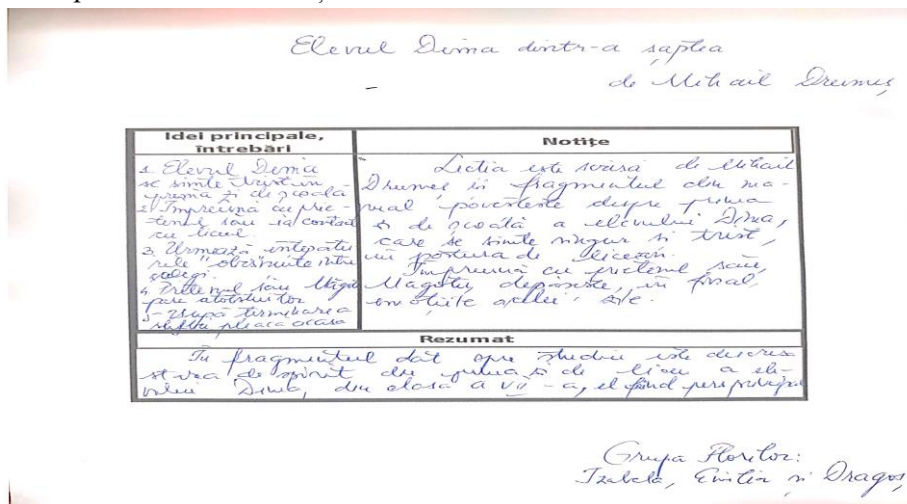 Elevul Dima dintr-a șaptea
de Mihail Drumeș
Idei principale,
întrebări
1. Elevul Dima
se simte trist în
prima zi de școală
2. Împreună cu prie-
tenul său ia contact
cu liceul.
3. Urmează întepătu
rile obișnuite între
colegi.
4. Prietenul său Măgâț
pare atotștiutor
5 - După terminarea
pleacă acasă
Notițe
Lecția este scrisă de Mihail
Drumeș iî fragmentul din ma-
nual povestește despre prima
zi de școală a elevului Dima,
care se simte singur și trist,
în postura de licean.
Împreună cu prietenul său,
depășește, în final,
emoțiile acelei zile.
Rezumat
În fragmentul dat spre studiu este descrisă
starea de spirit din prima zi de liceu a ele-
vului Dima, din clasa a VII-a, el fiind pers principal
Grupa Florilor:
Izabela, și Dragoș,